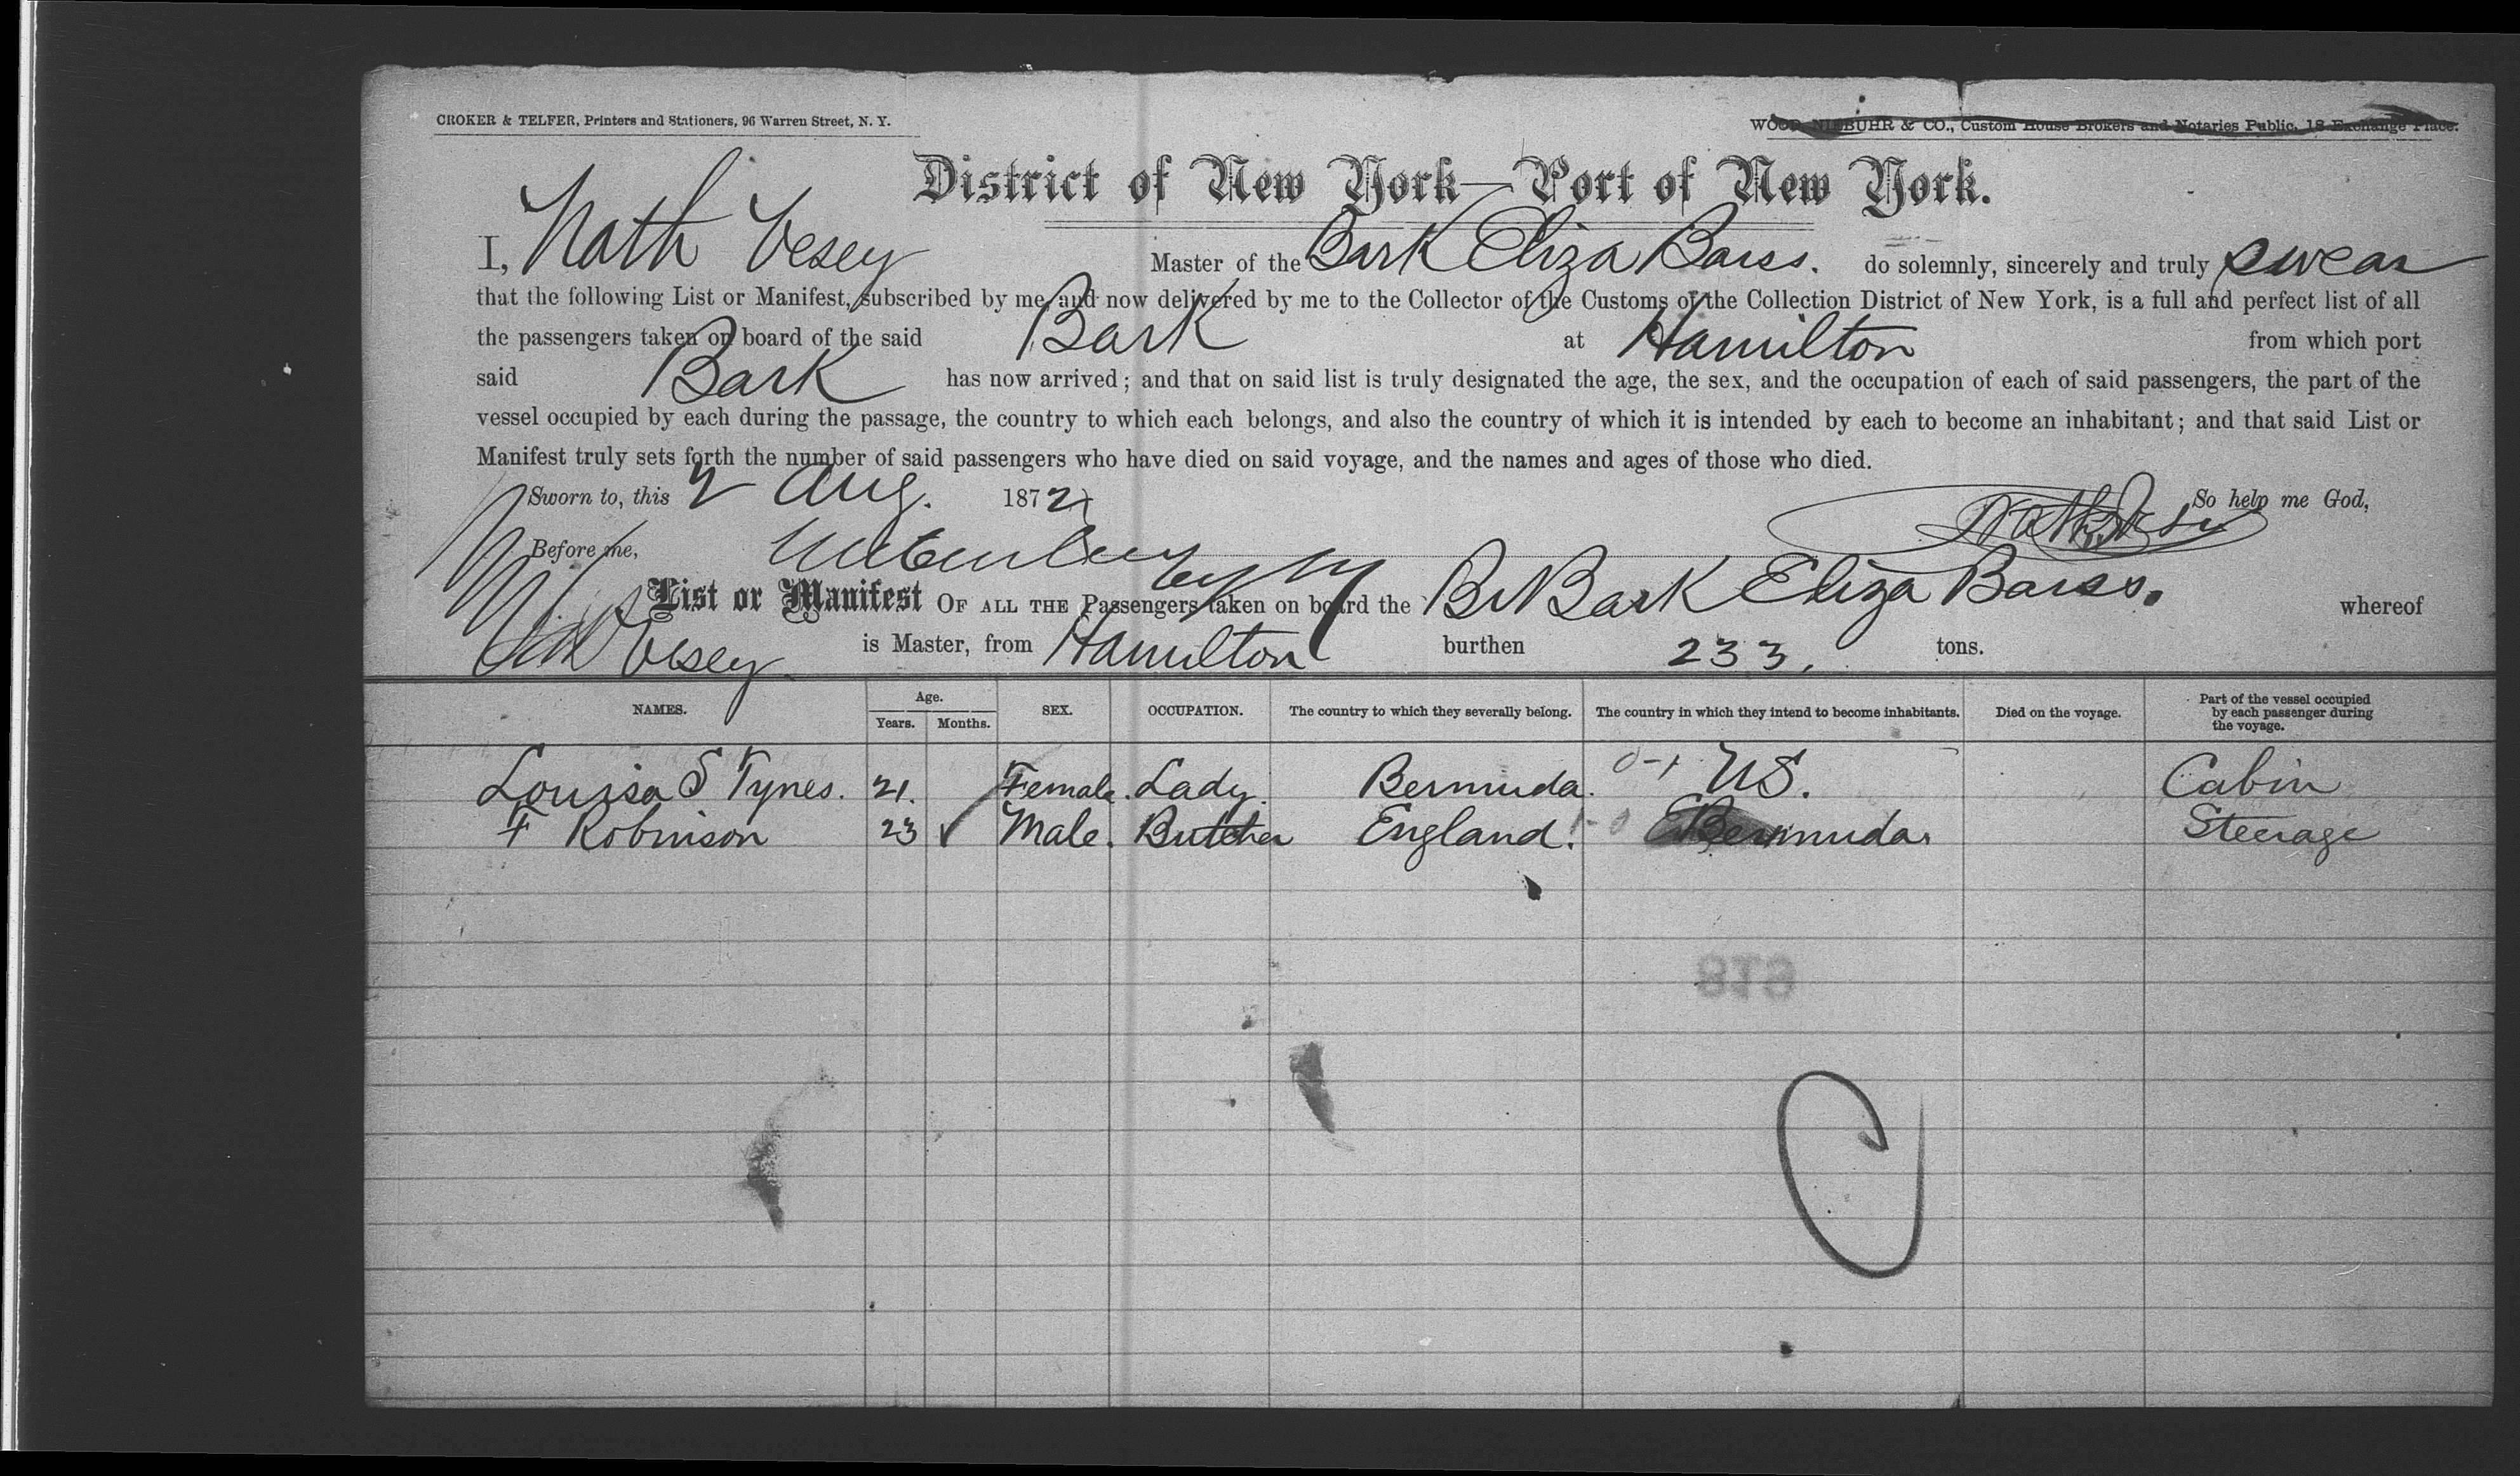 CROKER & TELFER, Printers and Stationers, 96 Warren Street, N. Y.
WOOD, NIEBUHR & CO., Custom House Brokers and Notaries Public, 18 Exchange Place.
District of New York—Port of New York.
I, Nath Vesey Master of the Bark Eliza Barss. do solemnly, sincerely and truly swear
that the following List or Manifest, subscribed by me, and now delivered by me to the Collector of the Customs of the Collection District of New York, is a full and perfect list of all
the passengers taken on board of the said Bark at Hamilton from which port
said Bark has now arrived; and that on said list is truly designated the age, the sex, and the occupation of each of said passengers, the part of the
vessel occupied by each during the passage, the country to which each belongs, and also the country of which it is intended by each to become an inhabitant; and that said List or
Manifest truly sets forth the number of said passengers who have died on said voyage, and the names and ages of those who died.
Sworn to, this 2 Aug. 1872 So help me God,
Before me,
List or Manifest OF ALL THE Passengers taken on board the Br Bark Eliza Barss. whereof
Vesey is Master, from Hamilton burthen 233. tons.
NAMES. Age. Years. Months. SEX. OCCUPATION. The country to which they severally belong. The country in which they intend to become inhabitants. Died on the voyage. Part of the vessel occupied by each passenger during the voyage.
Louisa S Tynes. 21. Female. Lady. Bermuda. 0-1 US. Cabin
F Robinson 23 ✓ Male. Butcher England. 1-0 Bermuda. Steerage
819